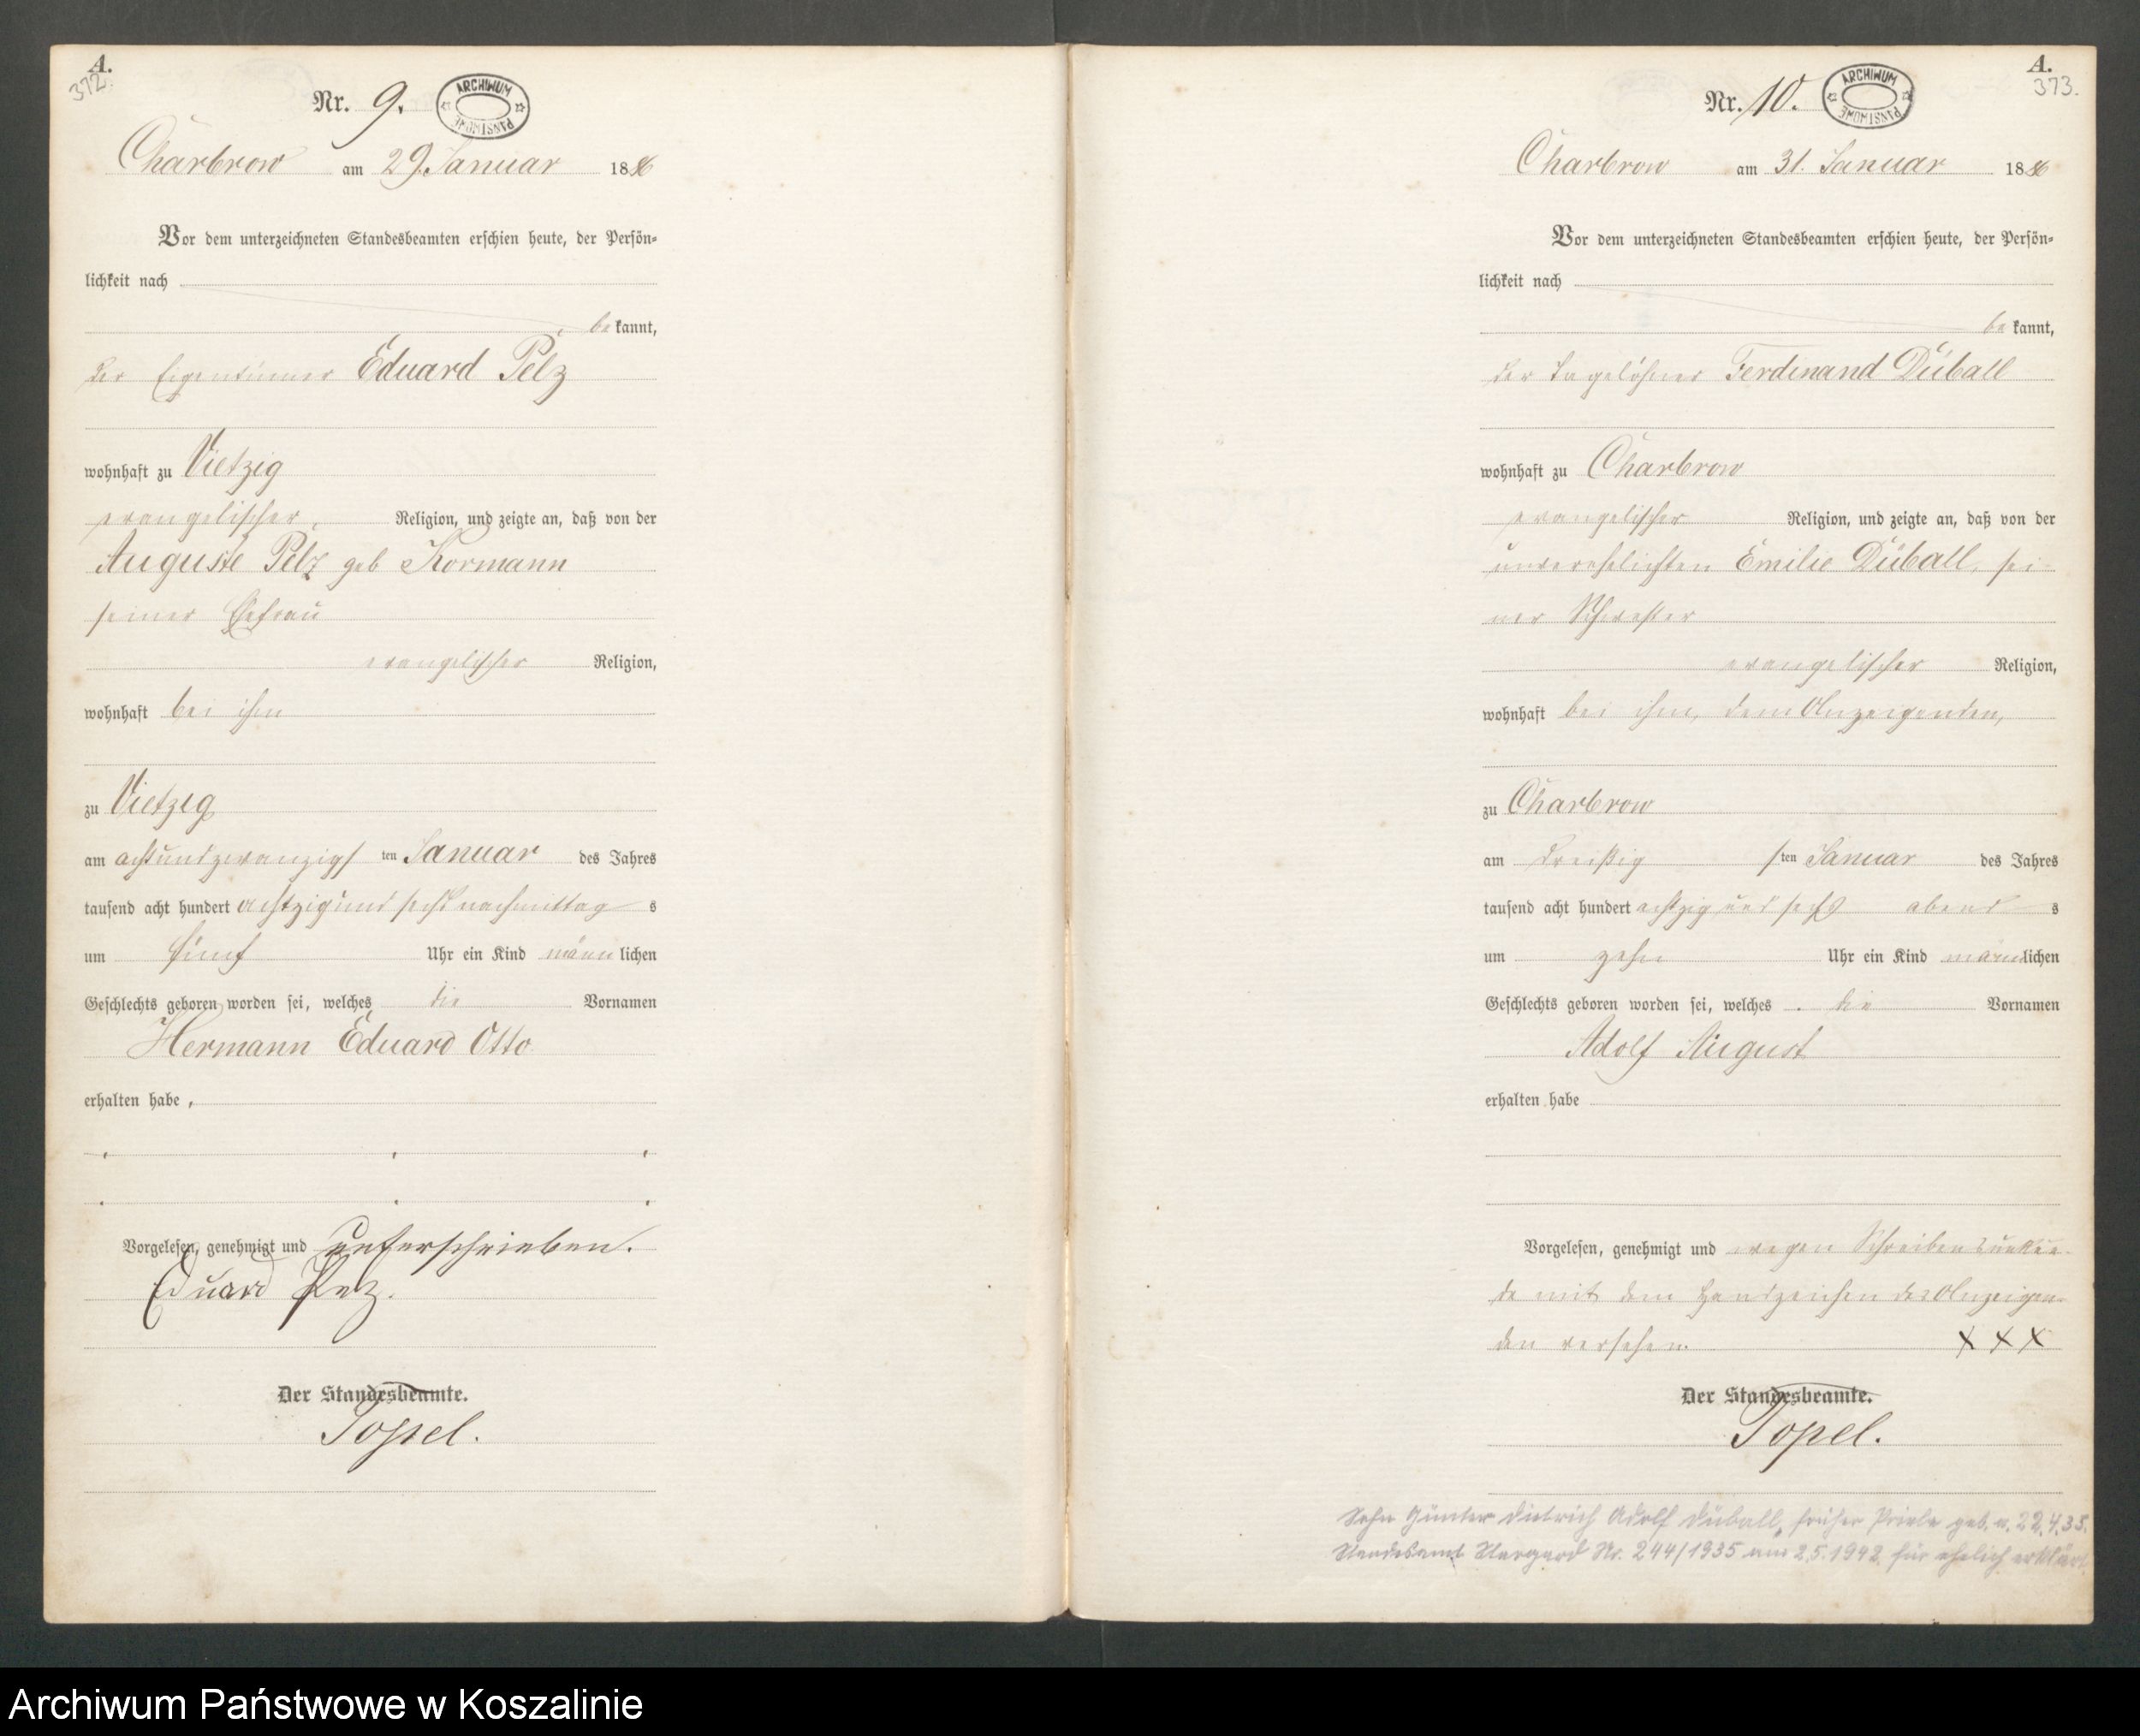 A.
372.
Nr. 9.
ARCHIWUM PAŃSTWOWE
Charbrow am 29. Januar 1886
Vor dem unterzeichneten Standesbeamten erschien heute, der Persön-
lichkeit nach
bekannt,
der Eigentümer Eduard Pelz
wohnhaft zu Vietzig
evangelischer Religion, und zeigte an, daß von der
Auguste Pelz geb Kormann
seiner Ehefrau
evangelischer Religion,
wohnhaft bei ihm
zu Vietzig
am achtundzwanzigsten Januar des Jahres
tausend acht hundert achtzig und sechs nachmittags
um fünf Uhr ein Kind männlichen
Geschlechts geboren worden sei, welches die Vornamen
Hermann Eduard Otto
erhalten habe,
Vorgelesen, genehmigt und unterschrieben.
Eduard
Der Standesbeamte.
Topel.
A.
373.
Nr. 10.
ARCHIWUM PAŃSTWOWE
Charbrow am 31. Januar 1886
Vor dem unterzeichneten Standesbeamten erschien heute, der Persön-
lichkeit nach
bekannt,
der Tagelöhner Ferdinand Düball
wohnhaft zu Charbrow
evangelischer Religion, und zeigte an, daß von der
unverehelichten Emilie Düball, sei-
ner Schwester
evangelischer Religion,
wohnhaft bei ihm, dem Anzeigenden,
zu Charbrow
am dreißigsten Januar des Jahres
tausend acht hundert achtzig und sechs abends
um zehn Uhr ein Kind männlichen
Geschlechts geboren worden sei, welches die Vornamen
Adolf August
erhalten habe
Vorgelesen, genehmigt und wegen Schreibensunkun-
de mit dem Handzeichen des Anzeigen-
den versehen. XXX
Der Standesbeamte.
Topel.
Sohn Günter Dietrich Adolf Düball, früher geb. a. 22.4.35.
Standesamt Stargard Nr. 244/1935 am 2.5.1942 für ehelich erklärt.
Archiwum Państwowe w Koszalinie